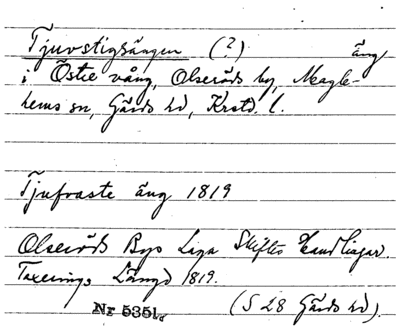 Tjuvstigsängen (?) äng
i Östre vång, Olseröds by, Magle-
hems sn, Gärds hd, Krstd. l.
Tjufvaste äng 1819
Olseröds Bys Laga Skiftes Handlingar.
Taxerings Längd 1819.
Nr 5351. (S 28 Gärds hd).